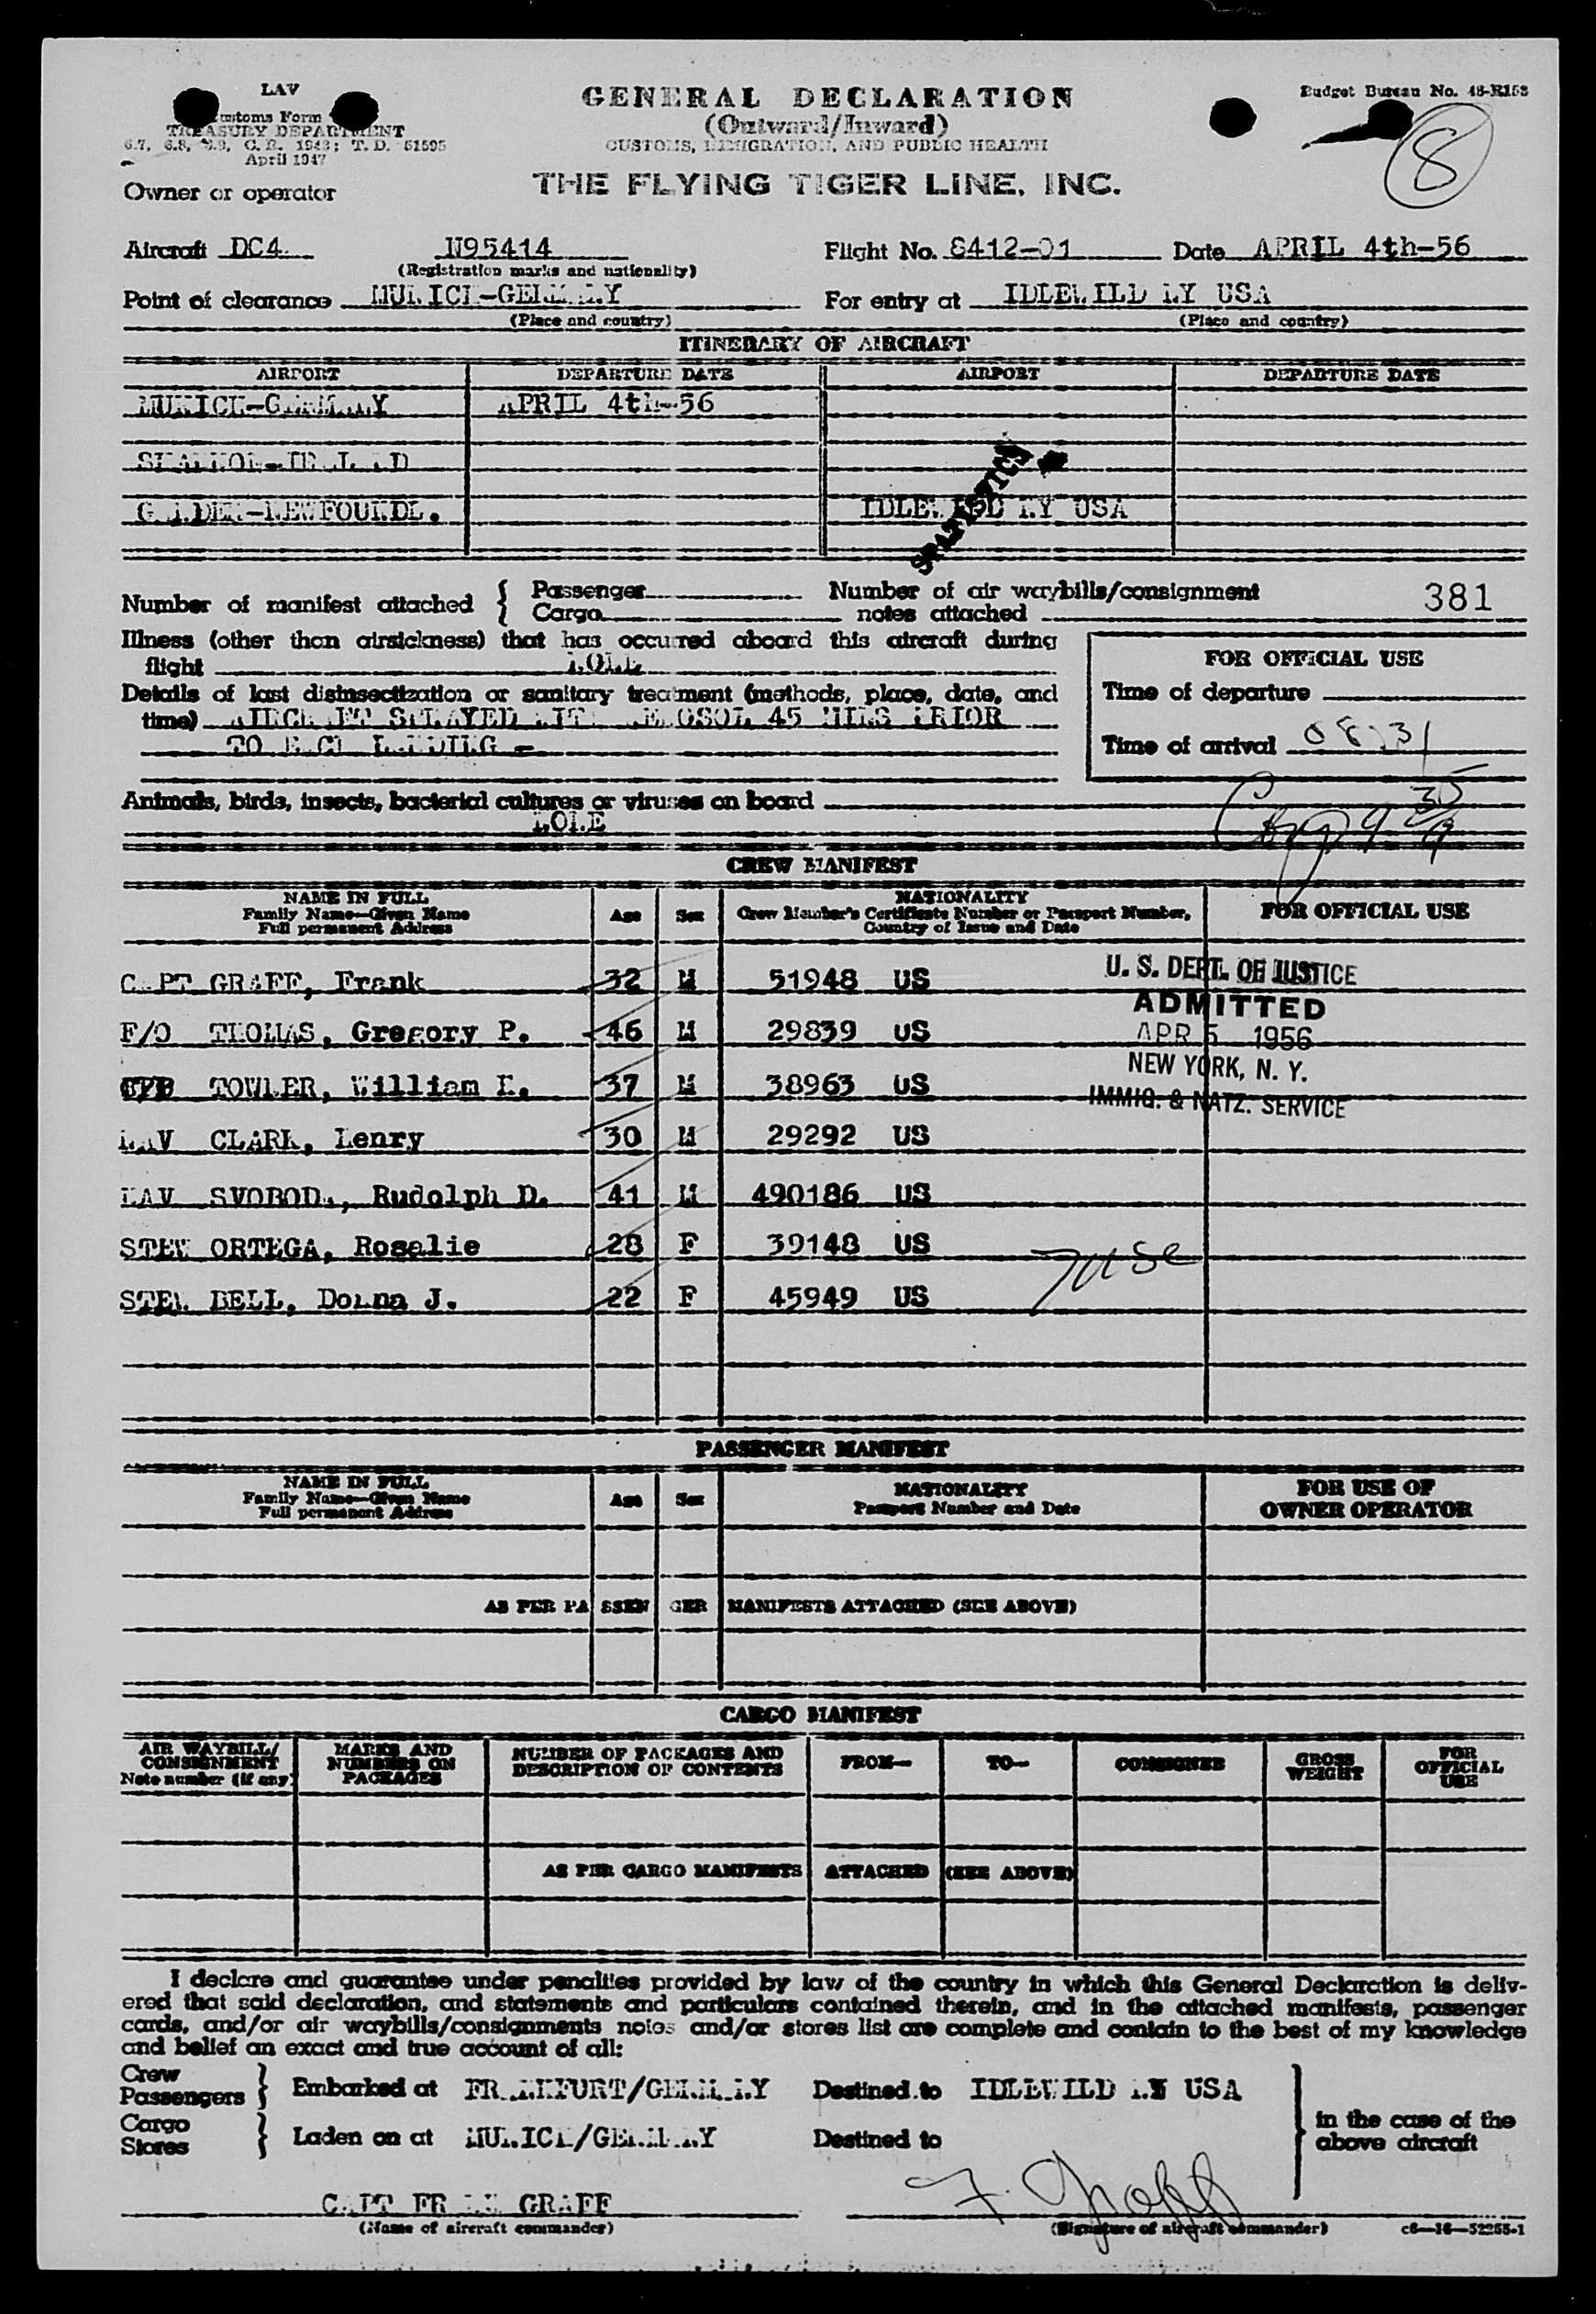 LAV
Customs Form
TREASURY DEPARTMENT
6.7, 6.8, 6.9, C. R. 1943; T. D. 51595
April 1947
GENERAL DECLARATION
(Outward/Inward)
CUSTOMS, IMMIGRATION, AND PUBLIC HEALTH
Budget Bureau No. 48-R153
8
Owner or operator
THE FLYING TIGER LINE, INC.
Aircraft DC4 N95414 Flight No. 8412-01 Date APRIL 4th-56
(Registration marks and nationality)
Point of clearance MUNICH-GERMANY For entry at IDLEWILD NY USA
(Place and country) (Place and country)
ITINERARY OF AIRCRAFT
AIRPORT DEPARTURE DATE AIRPORT DEPARTURE DATE
MUNICH-GERMANY APRIL 4th-56
SHANNON-IRELAND
GANDER-NEWFOUNDL. IDLEWILD NY USA
STATISTICS
Number of manifest attached { Passenger
Cargo
Number of air waybills/consignment
notes attached
381
Illness (other than airsickness) that has occurred aboard this aircraft during
flight NONE
Details of last disinsectization or sanitary treatment (methods, place, date, and
time) AIRCRAFT SPRAYED WITH AEROSOL 45 MINS PRIOR
TO EACH LANDING -
FOR OFFICIAL USE
Time of departure
Time of arrival 0831
Animals, birds, insects, bacterial cultures or viruses on board
NONE
CREW MANIFEST
NAME IN FULL
Family Name—Given Name
Full permanent Address
Age Sex
NATIONALITY
Crew Member's Certificate Number or Passport Number,
Country of Issue and Date
FOR OFFICIAL USE
CAPT GRAFF, Frank 32 M 51948 US
F/O THOMAS, Gregory P. 46 M 29839 US
TOWLER, William H. 37 M 38963 US
NAV CLARK, Henry 30 M 29292 US
NAV SVOBODA, Rudolph D. 41 M 490186 US
STEW ORTEGA, Rosalie 28 F 39148 US
STEW BELL, Donna J. 22 F 45949 US
U. S. DEPT. OF JUSTICE
ADMITTED
APR 5 1956
NEW YORK, N. Y.
IMMIG. & NATZ. SERVICE
PASSENGER MANIFEST
NAME IN FULL
Family Name—Given Name
Full permanent Address
Age Sex
NATIONALITY
Passport Number and Date
FOR USE OF
OWNER OPERATOR
AS PER PASSENGER MANIFESTS ATTACHED (SEE ABOVE)
CARGO MANIFEST
AIR WAYBILL/
CONSIGNMENT
Note number (if any)
MARKS AND
NUMBERS ON
PACKAGES
NUMBER OF PACKAGES AND
DESCRIPTION OF CONTENTS
FROM—
TO—
CONSIGNEE
GROSS
WEIGHT
FOR
OFFICIAL
USE
AS PER CARGO MANIFESTS ATTACHED (SEE ABOVE)
I declare and guarantee under penalties provided by law of the country in which this General Declaration is deliv-
ered that said declaration, and statements and particulars contained therein, and in the attached manifests, passenger
cards, and/or air waybills/consignments notes and/or stores list are complete and contain to the best of my knowledge
and belief an exact and true account of all:
Crew
Passengers } Embarked at FRANKFURT/GERMANY Destined to IDLEWILD NY USA
Cargo
Stores } Laden on at MUNICH/GERMANY Destined to
in the case of the
above aircraft
CAPT FRANK GRAFF F. Graff
(Name of aircraft commander) (Signature of aircraft commander) c6—16—52255-1